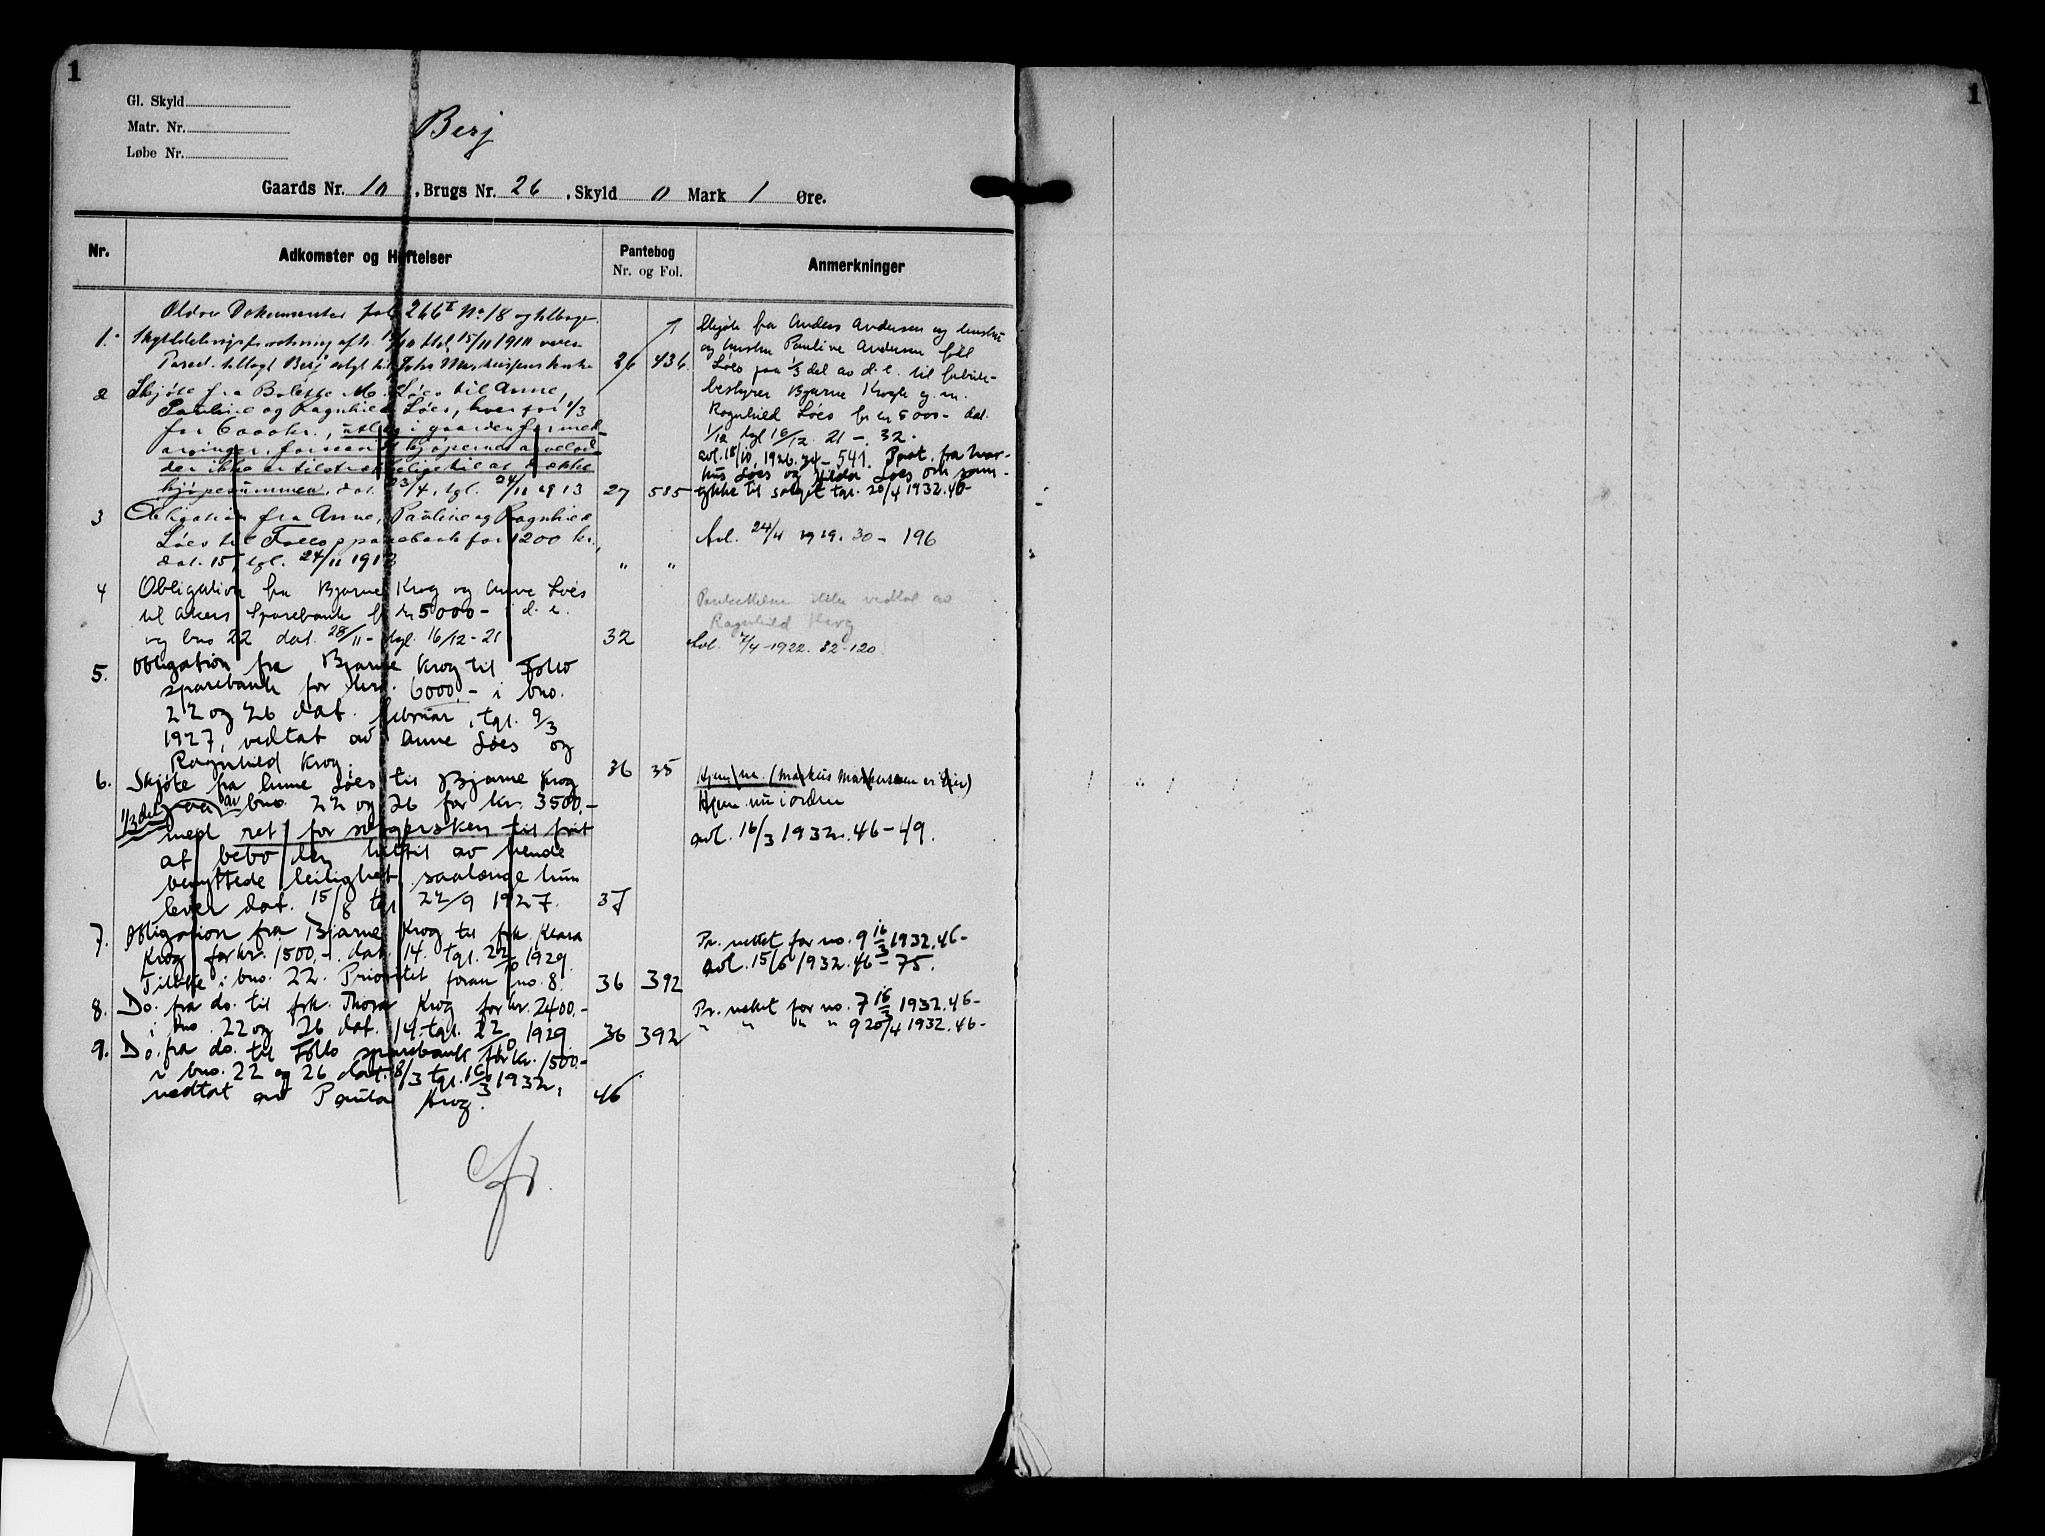 1
1
Gl. Skyld
Matr. Nr.
Løbe Nr.
Berj
Gaards Nr. 10, Brugs Nr. 26, Skyld 0 Mark 1 Øre.
Nr.
Adkomster og Heftelser
Pantebog
Nr. og Fol.
Anmerkninger
Ældre Dokumenter fol 266 I No 18 og tilbage.
1. Skylddelingsforretning tgl 15/11 1910 over
Parcel tillagt Berj solgt til 26 436.
2 Skjøte fra Bolette M. Løes til Anne,
Pauline og Ragnhild Løes, hver for 1/3
for 6000 kr., utlæg i gaarden for med-
arvinger, forsaavidt kjøpernes arvelod-
der ikke er tilstrækkelige til at dække
kjøpesummen, dat. 23/4, tgl. 24/11 1913 27 585
3 Obligation fra Anne, Pauline og Ragnhild
Løes til Follo sparebank for 1200 kr.,
dat. 15, tgl. 24/11 1913 " "
4 Obligation fra Bjarne Krog og Anne Løes
til Akers Sparebank for kr 5000 - i d. e.
og bno 22 dat. 28/11 - tgl. 16/12 - 21 32
5. Obligation fra Bjarne Krog til Follo
sparebank for kr. 6000,- i bno.
22 og 26 dat. februar, tgl. 9/3
1927, vedtat av Anne Løes og
Ragnhild Krog. 36 35
6. Skjøte fra Anne Løes til Bjarne Krog
1/3 del av bno. 22 og 26 for kr. 3500.-
med ret for sælgersken til frit
at bebo den hittil av hende
benyttede leilighet, saalænge hun
lever dat. 15/8 tgl 22/9 1927. 37
7. Obligation fra Bjarne Krog til frk. Klara
Krog for kr. 1500.- dat. 14. tgl. 22/10 1929
Tillike i bno. 22. Prioritet foran no. 8. 36 392
8. Do. fra do. til frk. Thora Krog for kr. 2400.-
i bno. 22 og 26 dat. 14. tgl. 22/10 1929 36 392
9. Do. fra do. til Follo sparebank for kr. 1500.-
i bno. 22 og 26 dat. 8/3 tgl. 16/3 1932,
vedtat av Paula Krog. 46
Skjøte fra Anders Andersen og hustru
og hustru Pauline Andersen født
Løes paa 1/3 del av d. e. til
bestyrer Bjarne Krog e. m.
Ragnhild Løes for kr 5000 - dat.
1/12 tgl 16/12. 21 -. 32.
avl. 18/10, 1926. 34 - 541. Prot. fra Mar-
kus Løes og Hilda Løes om sam-
tykke til salget tgl. 20/4 1932. 46-
Avl. 24/4 1919. 30 - 196
Panteretten ikke vedtat av
Ragnhild Krog
Avl. 7/4 - 1922. 32 - 120.
Hjem m. (Markus Markussen er eier)
Hjem nu i orden
avl. 16/3 1932. 46 - 49.
Pr. veket for no. 9 16/3 1932. 46-
avl. 15/6 1932. 46 - 75.
Pr. veket for no. 7 16/3 1932. 46-
" " " " 9 20/4 1932. 46-